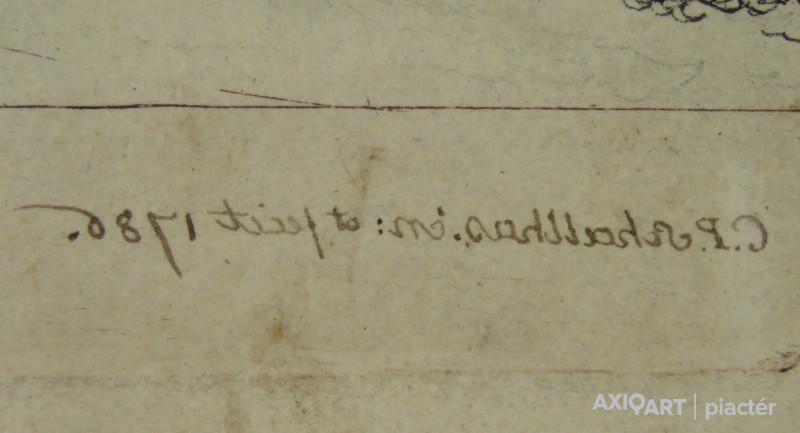 C.P. Schallhas. in: et fecit 1786.
AXIOART | piactér